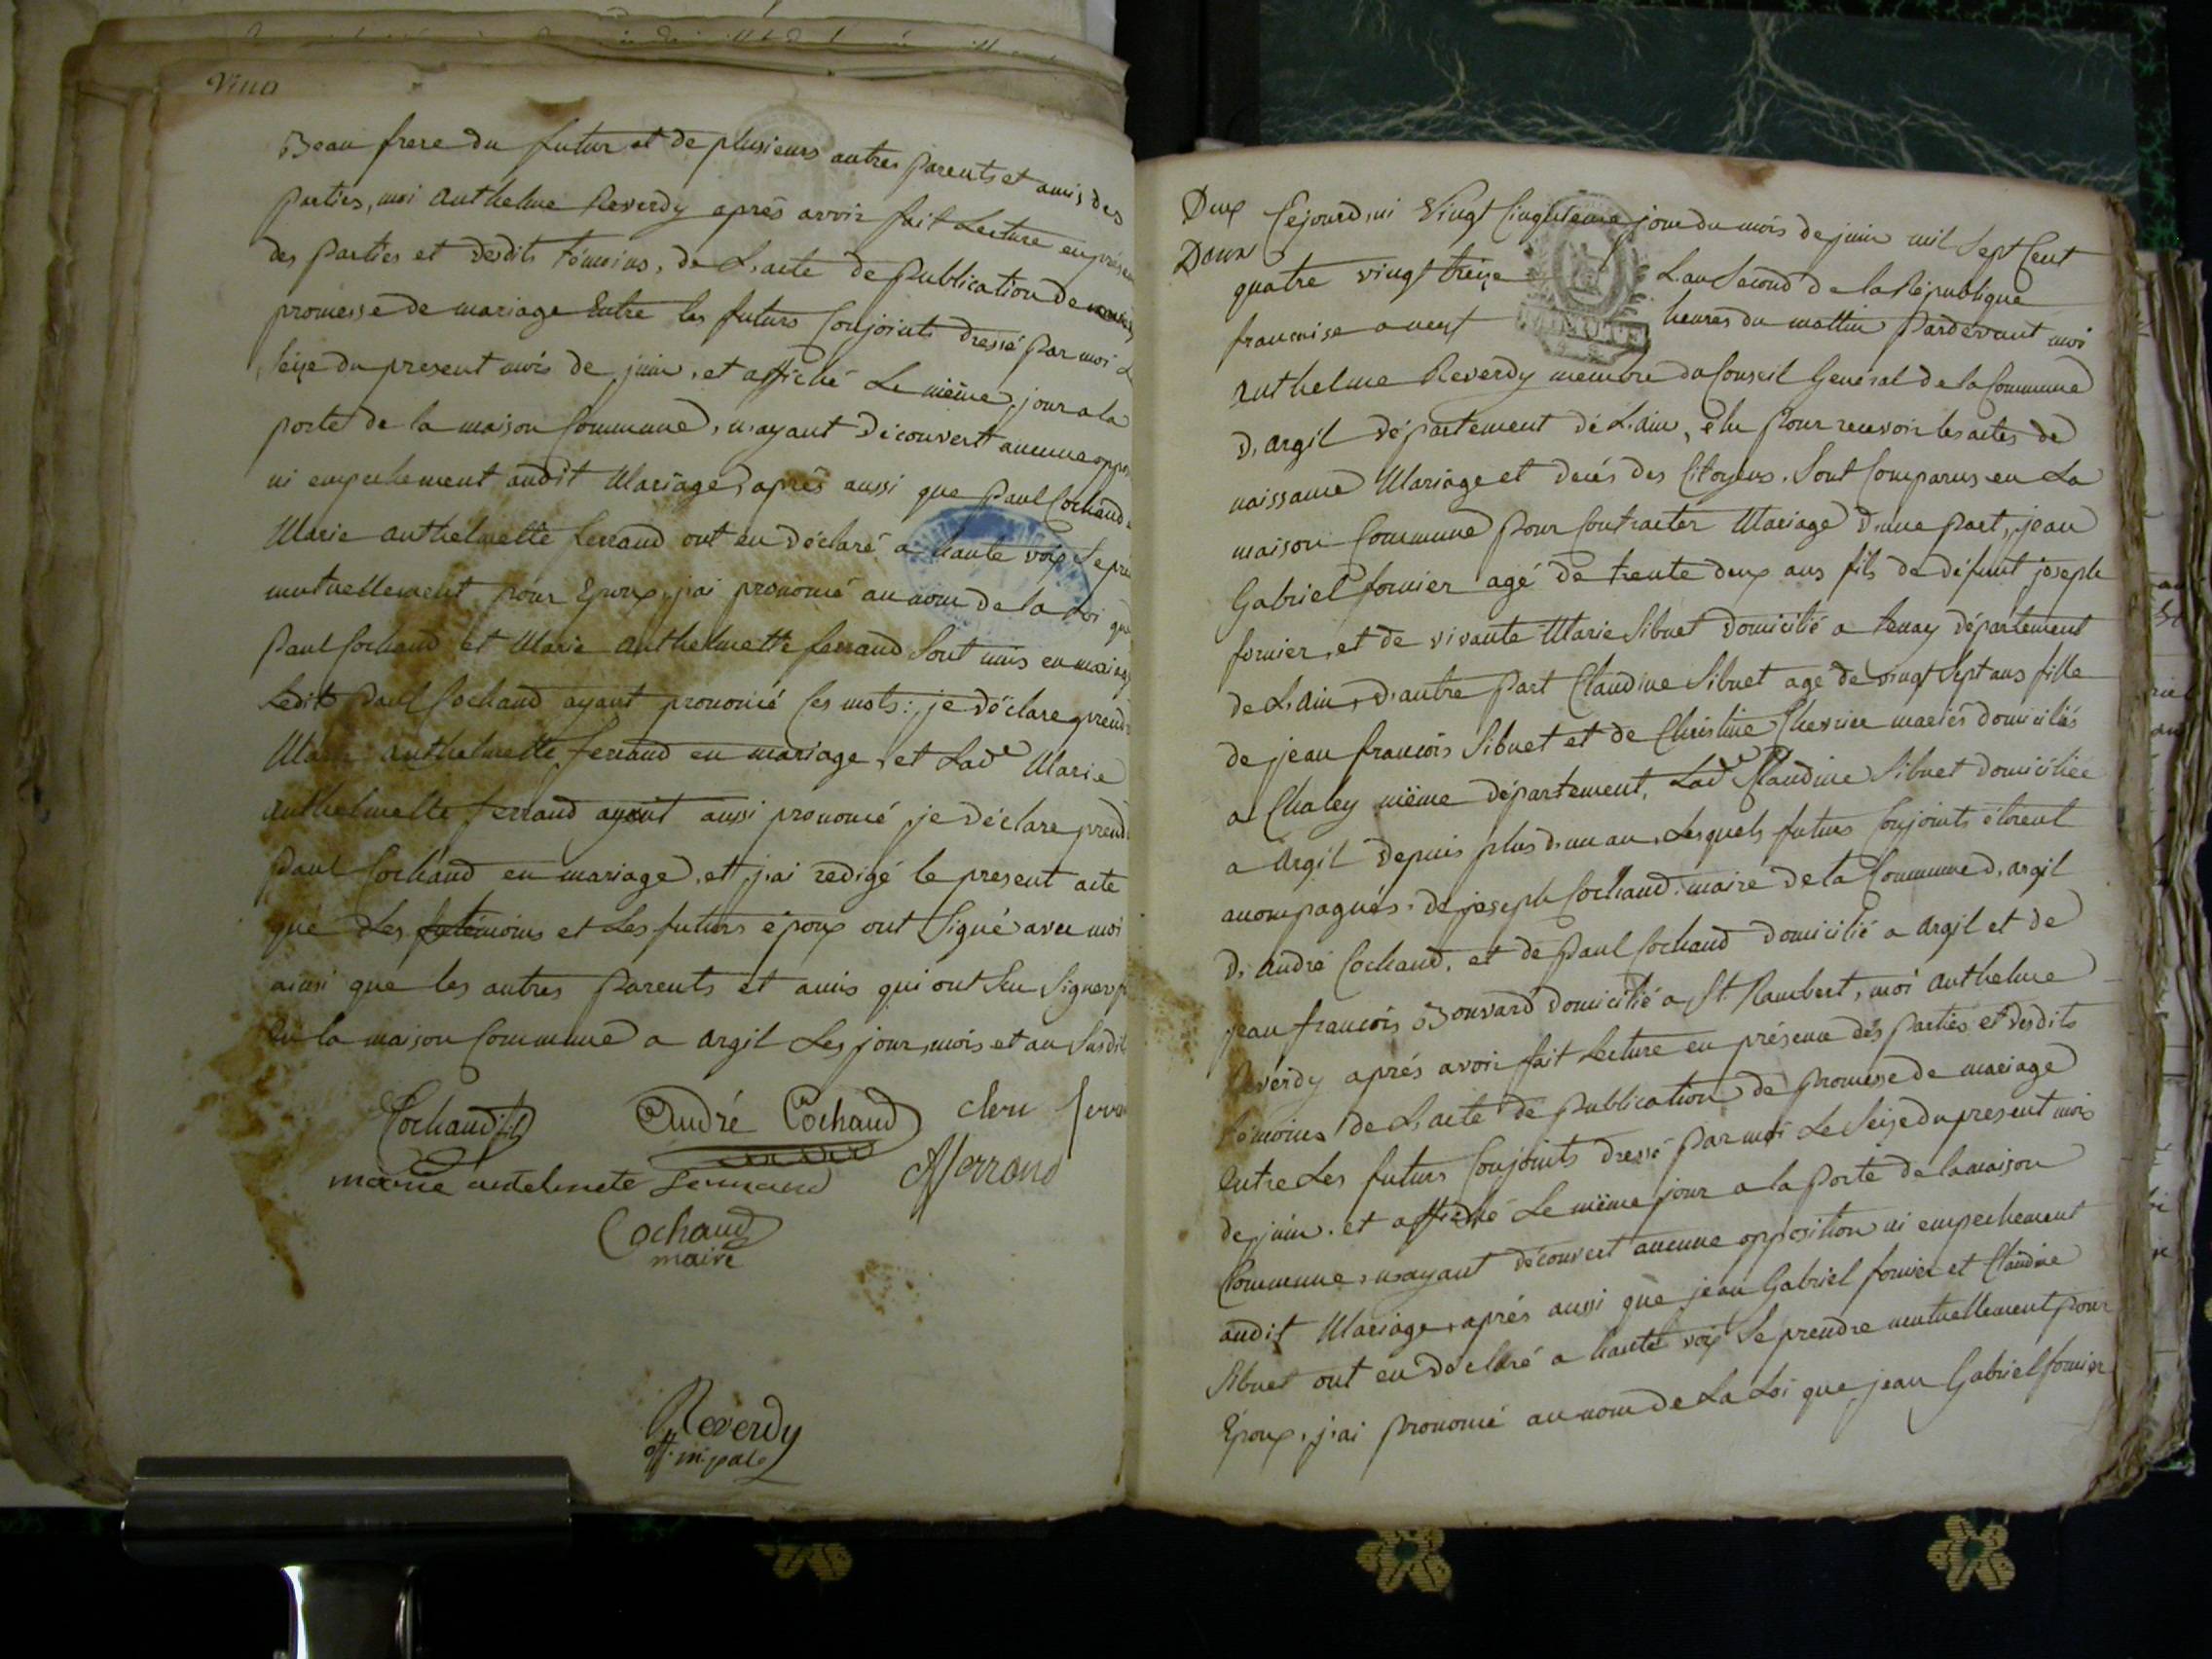 Beau frere du futur et de plusieurs autres parents et amis des
parties, moi anthelme Reverdy aprés avoir fait Lecture en prése
des parties et desdits témoins, de L.acte de publication de
promesse de mariage Entre les futurs Conjoints dressé par moi L
seize du present mois de juin, et affiché Le même jour a la
porte de la maison Commune, n.ayant découvert aucune oppo
ni empechement audit Mariage, aprés aussi que Paul Cochand
Marie anthelmette ferrand ont eu déclaré a haute voix Se pre
mutuellement pour Epoux, j'ai prononcé au nom de la Loi que
Paul Cochand et Marie anthelmette ferrand Sont unis en mariage
Ledit Paul Cochand ayant prononcé Ces mots: je déclare prend
Marie anthelmette ferrand en mariage, et Lade Marie
anthelmette ferrand ayant aussi prononcé je déclare prend
Paul Cochand en mariage, et j.ai redigé le present acte
que Les témoins et Les futurs époux ont Signé avec moi
ainsi que les autres parents et amis qui ont Su Signer
En la maison Commune a argil Les jour, mois et an Susdit
Cochand fils André Cochand clem ferra
marie antelmete ferrand Aferrand
Cochand
maire
Reverdy
off. m.pale
Deux Cejourd,ui Vingt Cinquieme jour du mois de juin mil Sept Cent
Doux
quatre vingt treize L.an Second de la République
francaise a neuf heures du mattin pardevant moi
anthelme Reverdy membre du Conseil Général de la Commune
D.argil département de L.ain, élu pour recevoir les actes de
naissance Mariage et decés des Citoyens. Sont Comparus en La
maison Commune pour Contracter Mariage d.une part, jean
Gabriel fornier agé de trente deux ans fils de défunt joseph
fornier, et de vivante Marie Sibuet domicilié a tenay département
de L.ain, d.autre part Claudine Sibuet agé de vingt Sept ans fille
de jean francois Sibuet et de Christine Chevrier mariés domiciliés
a Chaley même département, Lade Claudine Sibuet domiciliée
a Argil depuis plus d.un an, Lesquels futurs Conjoints étoient
acompagnés, de joseph Cochand maire de la Commune d.argil
d.andré Cochand, et de Paul Cochand domicilié a argil et de
jean francois Bonvard domicilié a St. Rambert, moi anthelme
Reverdy aprés avoir fait Lecture en présence des parties et desdits
témoins de L.acte de publication de promesse de mariage
Entre Les futurs Conjoints dressé par moi Le Seize du present mois
de juin, et affiché Le même jour a la porte de la maison
Commune, n.ayant découvert aucune opposition ni empechement
audit Mariage, aprés aussi que jean Gabriel fornier et Claudine
Sibuet ont eu déclaré a haute voix Se prendre mutuellement pour
Epoux, j.ai prononcé au nom de La Loi que jean Gabriel fornier